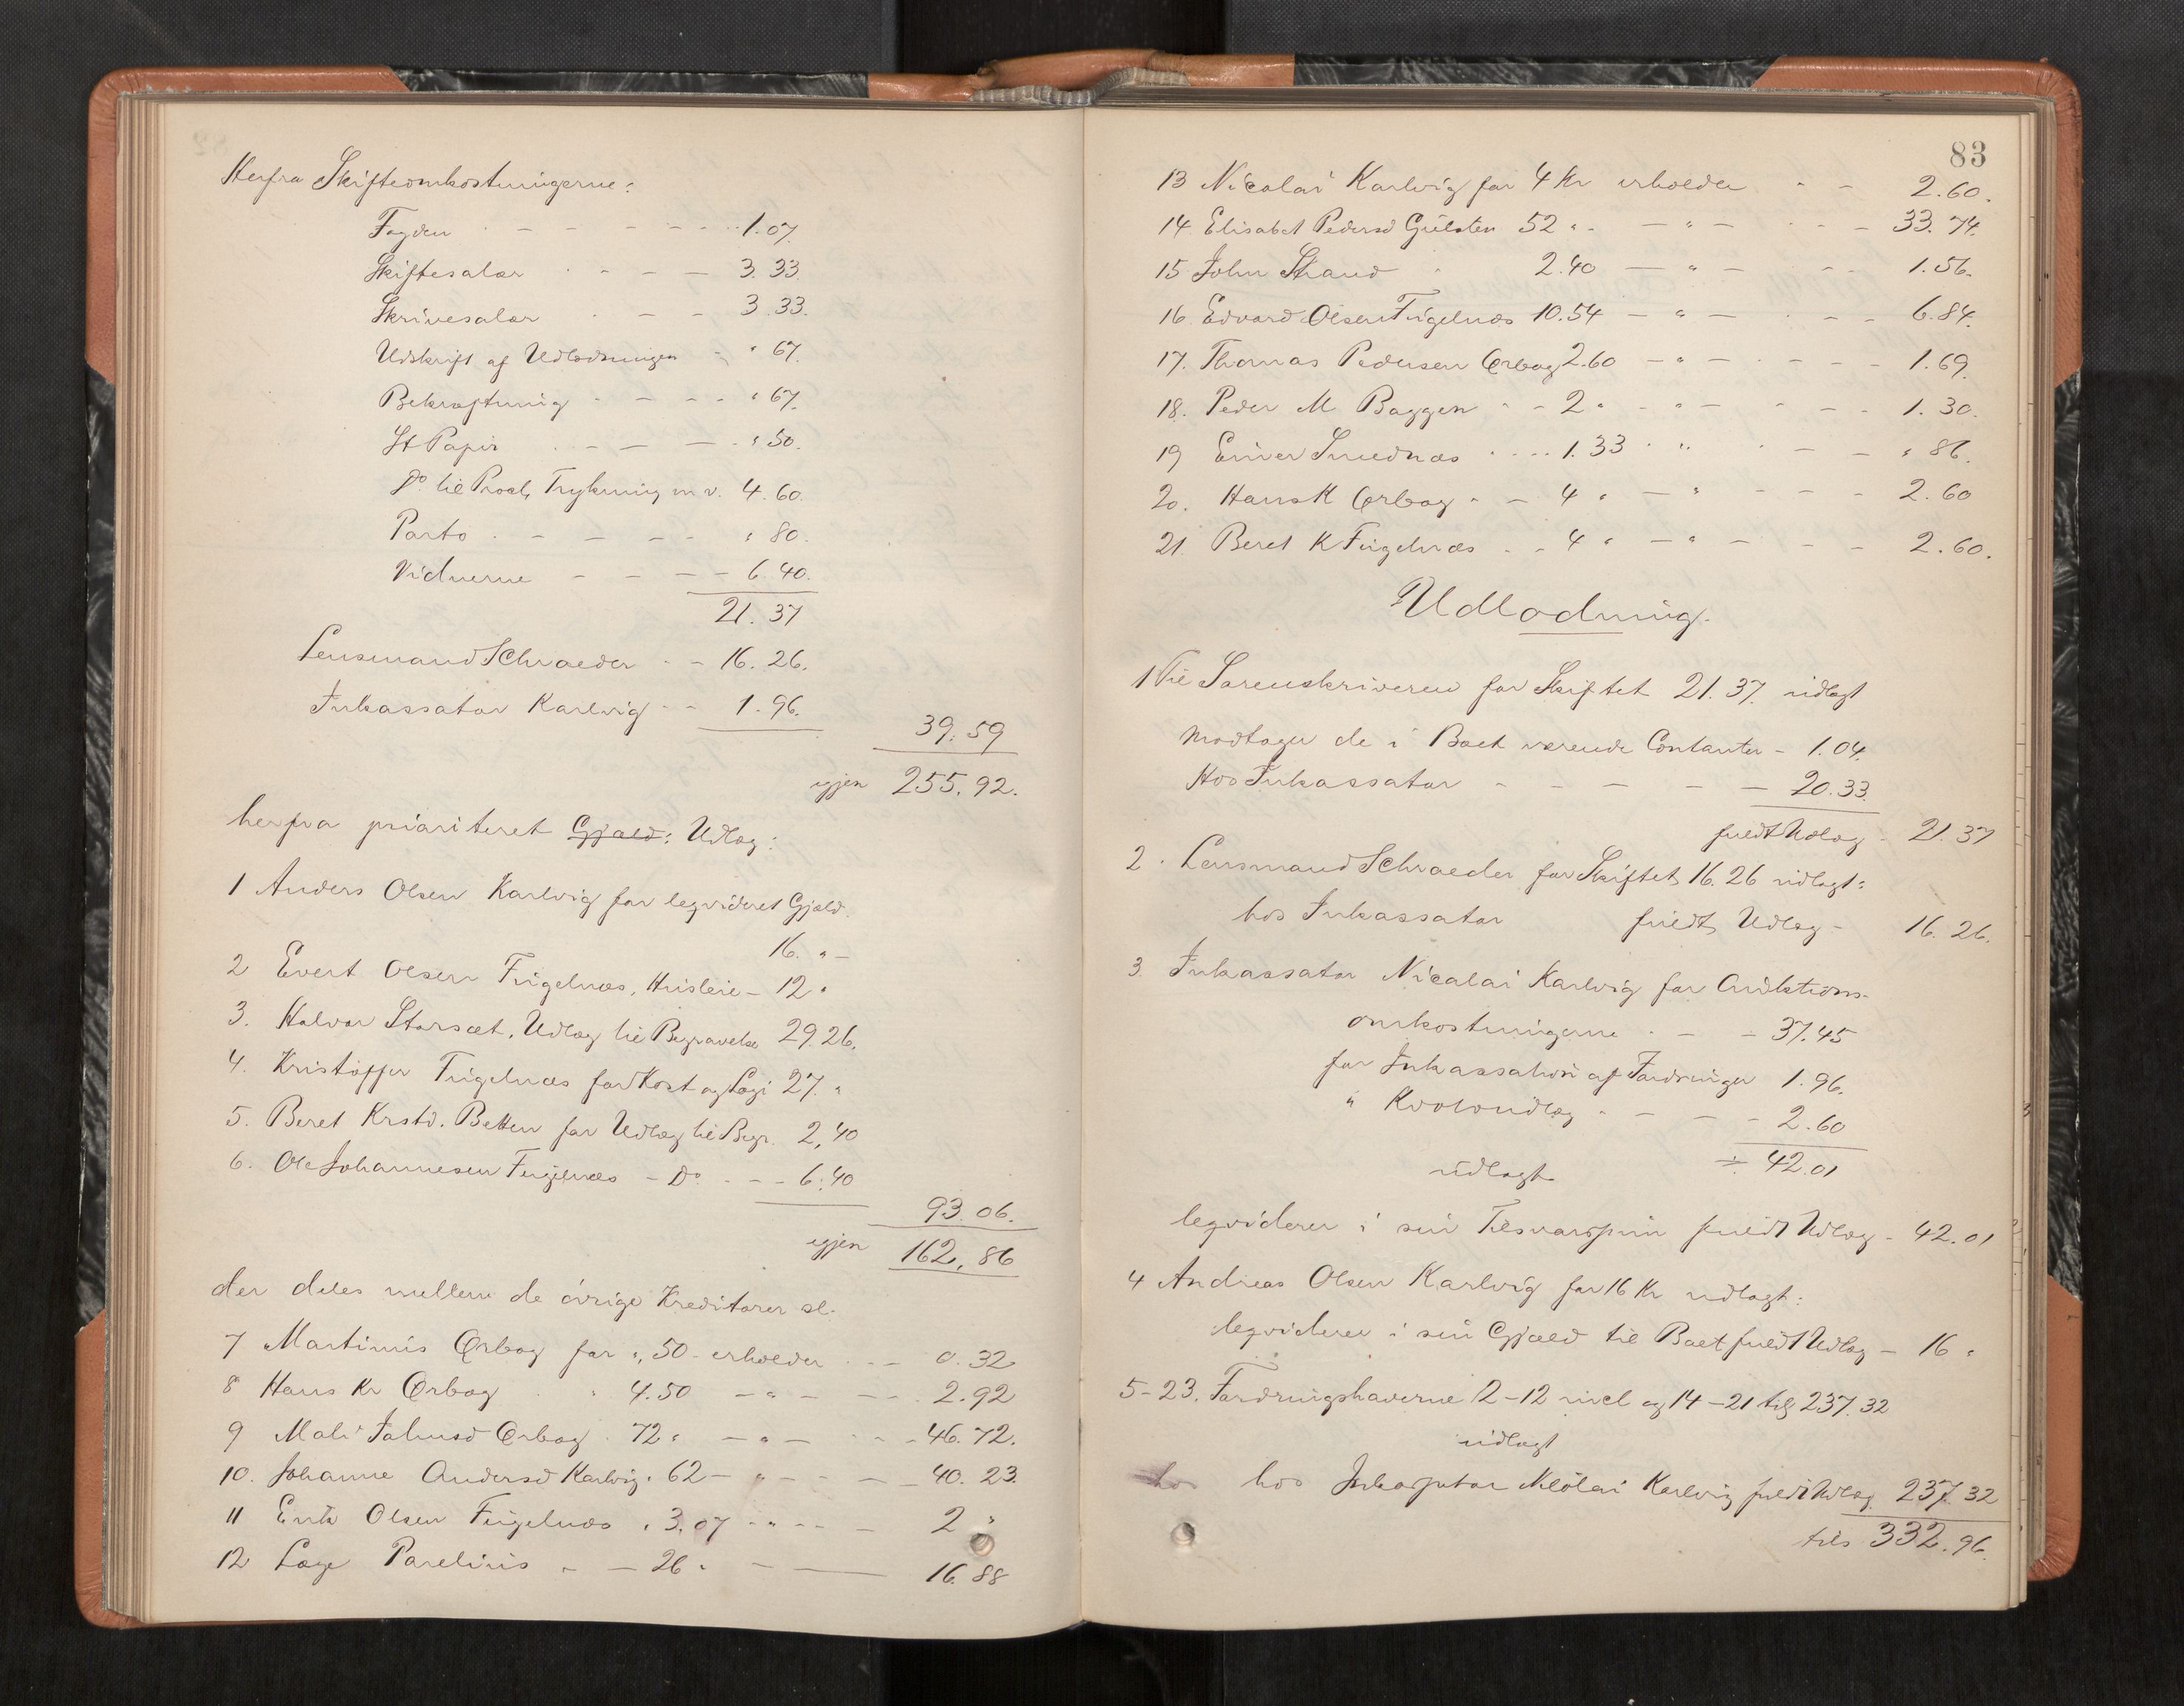 Herfra Skifteomkostningerne:
Fogden - - - - - 1.07.
Skiftesalær - - - 3.33
Skrivesalær - - - 3.33.
Udskrift af Udlodningen - " 67.
Bekræftning - - - - " 67.
St Papir - - - " 50.
Do til Procl, Trykning m. v. 4.60.
Porto - - - - - " 80.
Vidnerne - - - - 6.40.
21.37
Lensmand Schraeder - - 16.26.
Inkassator Karlvig - - 1.96.
39.59
igjen 255.92.
herfra prioriteret Gjæld: Udlæg:
1 Anders Olsen Karlvig for leqvideret Gjæld.
16. " -
2 Evert Olsen Fugelnæs, Husleie - 12 "
3. Halvor Storsæt, Udlæg til Begravelse 29.26.
4. Kristoffer Fugelnæs for Kost og Logi 27. "
5. Beret Krstd. Betten for Udlæg til Begr. 2,40
6. Ole Johannesen Fugelnæs - Do - - - 6.40
93.06.
igjen 162,86
der deles mellem de øvrige Kreditorer sl.
7 Martinus Ørbog for ", 50 - erholder - - 0.32
8 Hans Kr Ørbog " 4.50 - " - - - 2.92
9 Mali Johnsd Ørbog . 72 " - " - - - 46.72.
10. Johanne Andersd Karlvig " 62 - " - - - 40.23.
11 Erik Olsen Fugelnæs " 3.07 - " - - - 2 "
12 Lage Parelius " - 26 " - - 16.88
83
13 Nicolai Karlvig for 4 Kr erholder - - 2.60.
14 Elisabet Pedersd Gulsten 52 " - - " - - - 33.74.
15 John Strand " 2.40 - " - - - 1.56.
16 Edvard Olsen Fugelnæs 10.54 - " - - - 6.84.
17. Thomas Pedersen Ørbog 2.60 - " - - - - 1.69.
18. Peder M Baggen - - 2 " - " - - - - 1.30.
19 Einer Smednæs - - - - 1.33 " " - - - " 86.
20. Hans K Ørbog " - 4 " - " - - - 2.60
21. Beret K Fugelnæs - - 4 " - " - - - 2.60.
Udlodning.
1 Til Sorenskriveren for Skiftet 21.37. udlagt
modtager de i Boet værende Contanter - 1.04.
Hos Inkassator - - - - - 20.33.
fuldt Udlæg - 21.37
2. Lensmand Schraeder for Skiftet 16.26 udlagt:
hos Inkassator fuldt Udlæg - 16.26.
3. Inkassator Nicolai Karlvig for Auktions-
omkostningerne - - - 37.45
for Inkassation af Fordringer 1.96.
" Udlæg - - - - 2.60
udlagt ÷ 42.01
leqviderer i sin fuldt Udlæg - 42.01
4 Andreas Olsen Karlvig for 16 Kr udlagt:
leqviderer i sin Gjæld til Boet fuldt Udlæg - 16 "
5-23. Fordringshaverne 2-12 incl og 14-21 tils 237.32
udlagt
hos hos Inkassator Nikolai Karlvig fuldt Udlæg 237.32
tils 332.96.